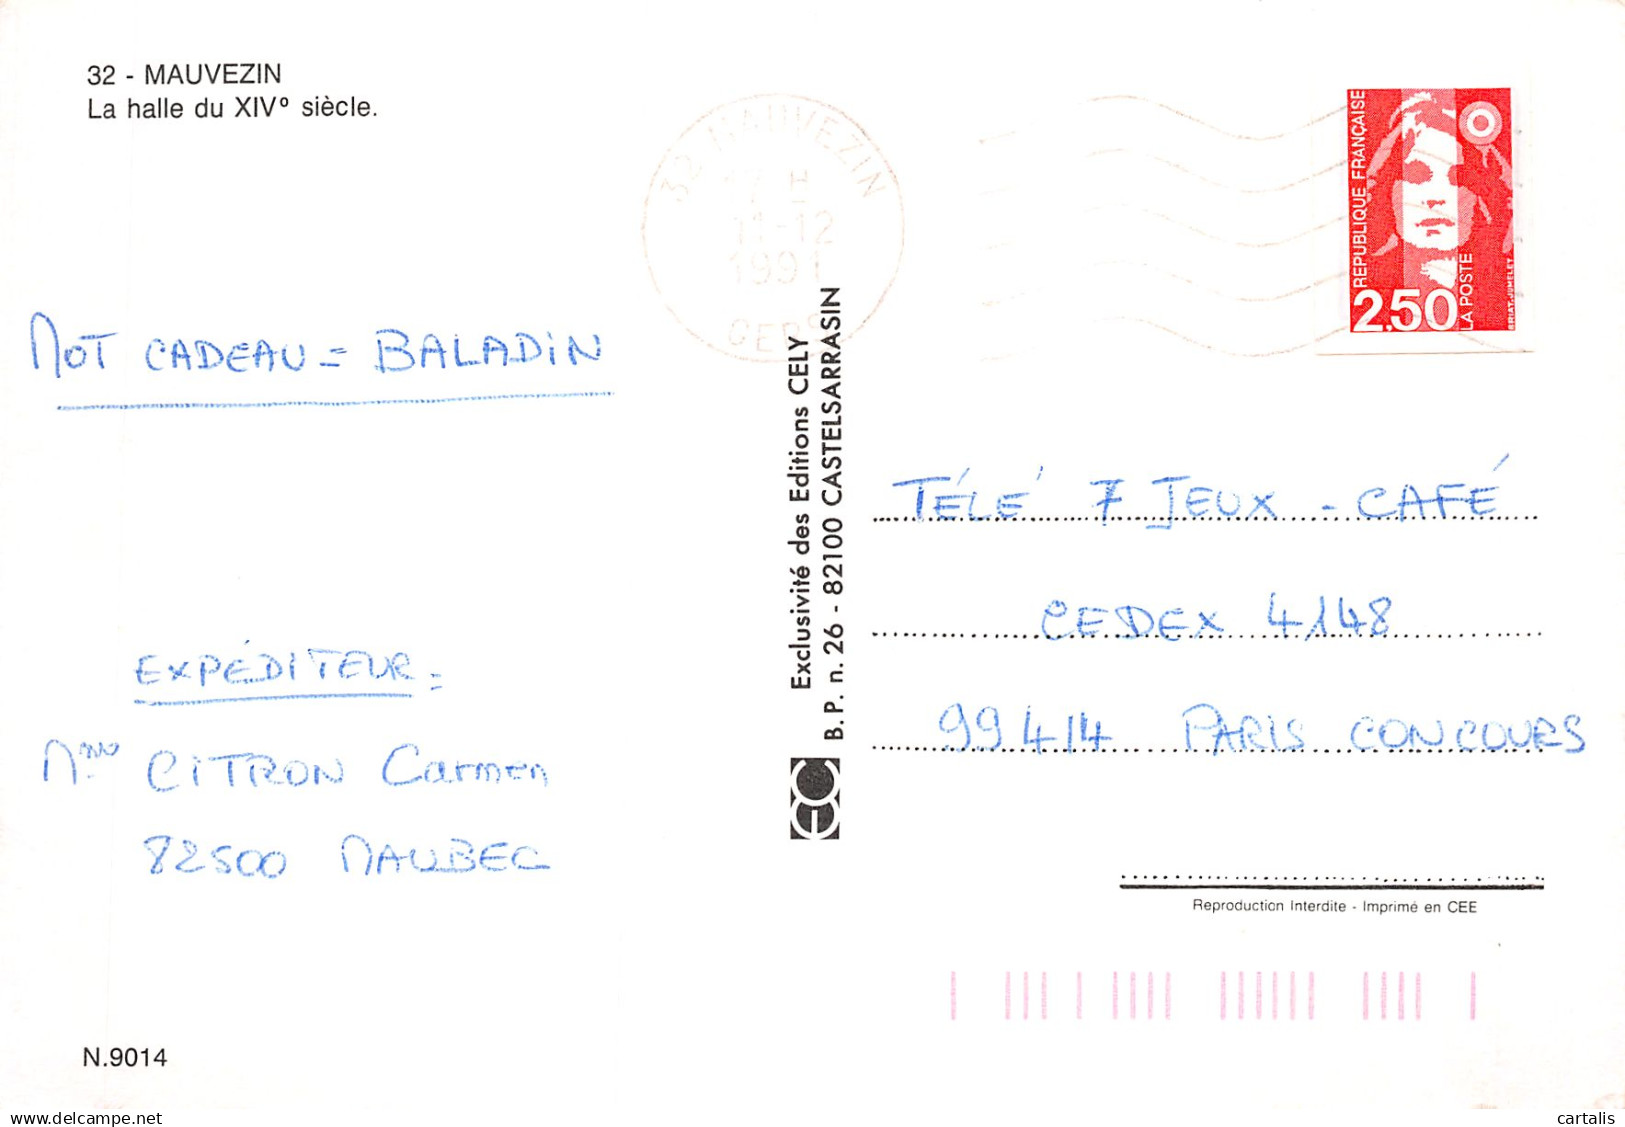 32 - MAUVEZIN
La halle du XIVº siècle.
32 MAUVEZIN
17 H
11-12
1991
GERS
RÉPUBLIQUE FRANÇAISE
2,50
LA POSTE
MOT CADEAU = BALADIN
Exclusivité des Editions CELY
B.P. n. 26 - 82100 CASTELSARRASIN
TÉLÉ 7 JEUX - CAFÉ
CEDEX 4148
99414 PARIS CONCOURS
EXPÉDITEUR =
Mme CITRON Carmen
82500 MAUBEC
EC
Reproduction Interdite - Imprimé en CEE
N.9014
cartalis